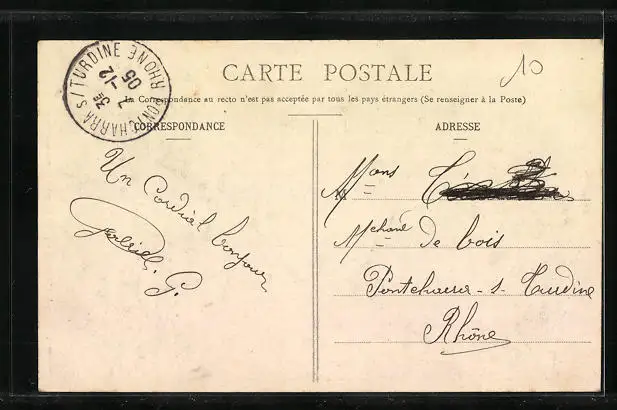 CARTE POSTALE
10
La Correspondance au recto n'est pas acceptée par tous les pays étrangers (Se renseigner à la Poste)
PONTCHARRA S/TURDINE RHONE
3E
7 -12
05
CORRESPONDANCE
Un Cordial bonjour
G.
ADRESSE
Mons
Mchand de bois
Pontcharra - s - Turdine
Rhône